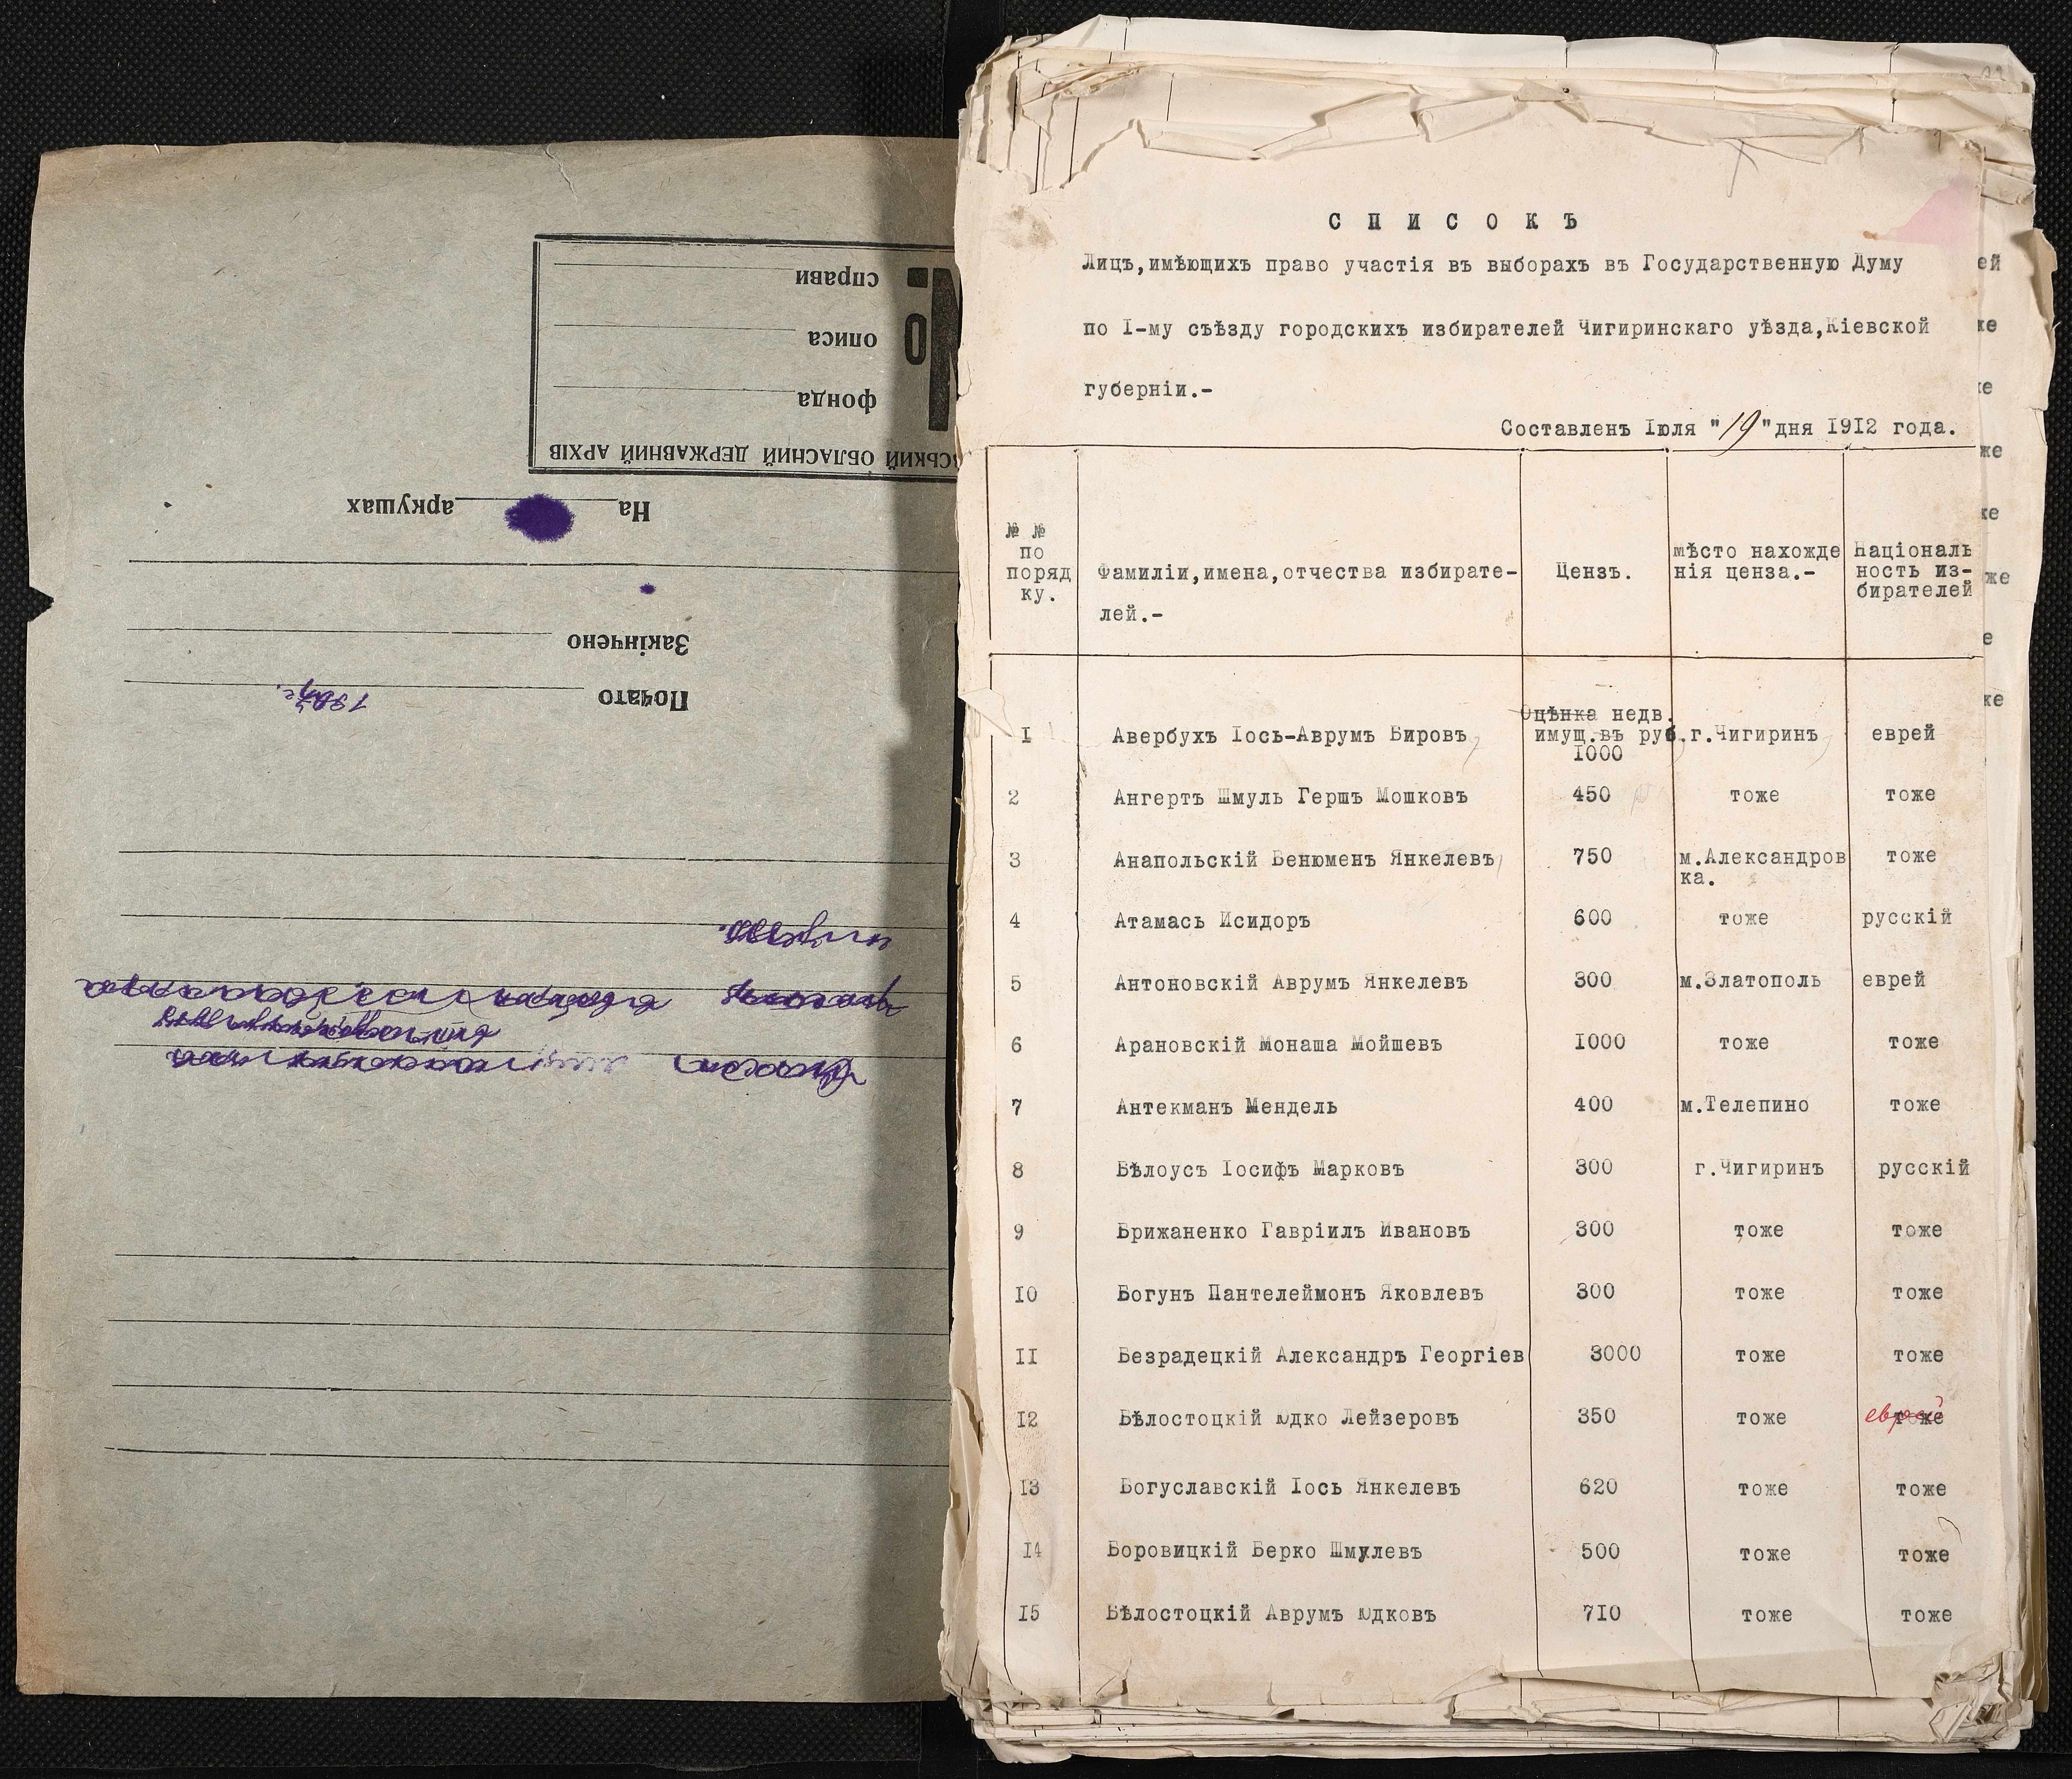 СПИСОКЪ
Лицъ,имѣющихъ право участія въ выборахъ въ Государственную Думу
по I-му съѣзду городскихъ избирателей Чигиринскаго уѣзда,Кіевской
губерніи.-
Составленъ Іюля "19"дня 1912 года.
№ № по поряд ку. Фамиліи,имена,отчества избирате-лей.- Цензъ. мѣсто нахожде нія ценза.- Націоналъ ность из-бирателей
Оцѣнка недв.
имущ.въ руб.
1 Авербухъ Іось-Аврумъ Бировъ 1000 г.Чигиринъ еврей
2 Ангертъ Шмуль Гершъ Мошковъ 450 тоже тоже
3 Анапольскій Бенюменъ Янкелевъ 750 м.Александров ка. тоже
4 Атамась Исидоръ 600 тоже русскій
5 Антоновскій Аврумъ Янкелевъ 300 м.Златополь еврей
6 Арановскій Монаша Мойшевъ 1000 тоже тоже
7 Антекманъ Мендель 400 м.Телепино тоже
8 Бѣлоусъ Іосифъ Марковъ 300 г.Чигиринъ русскій
9 Брижаненко Гавріилъ Ивановъ 300 тоже тоже
10 Богунъ Пантелеймонъ Яковлевъ 300 тоже тоже
11 Безрадецкій Александръ Георгіев 3000 тоже тоже
12 Бѣлостоцкій Юдко Лейзеровъ 350 тоже тоже еврей
13 Богуславскій Іось Янкелевъ 620 тоже тоже
14 Боровицкій Берко Шмулевъ 500 тоже тоже
15 Бѣлостоцкій Аврумъ Юдковъ 710 тоже тоже
СЬКИЙ ОБЛАСНИЙ ДЕРЖАВНИЙ АРХІВ
фонда
описа
справи
На аркушах
Закінчено
Почато